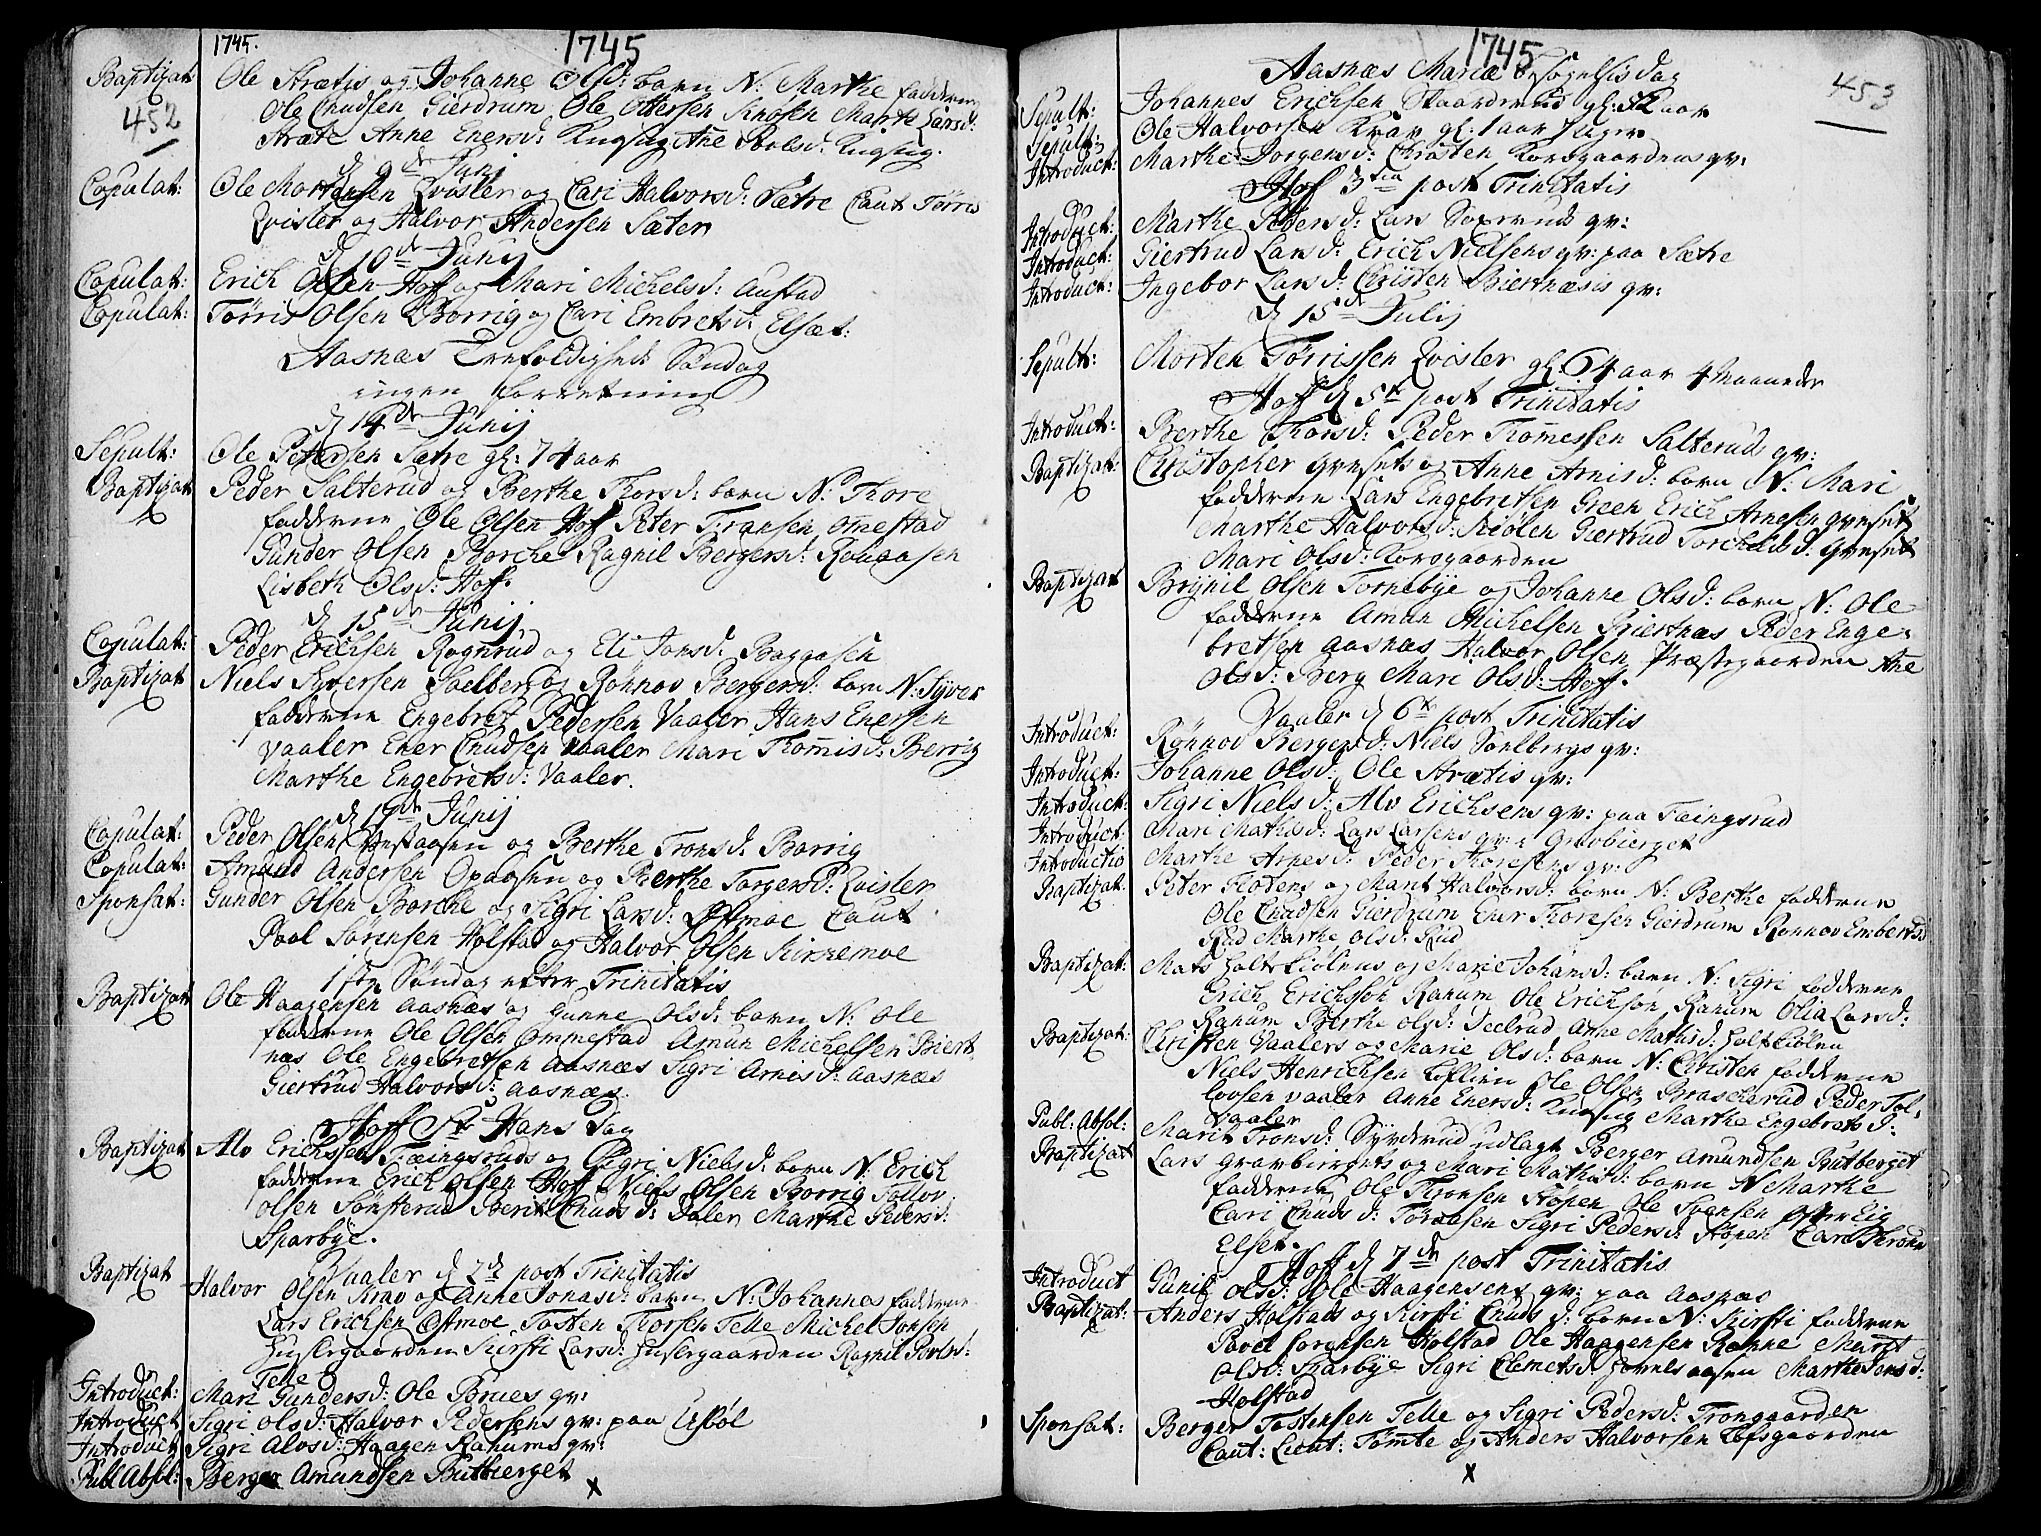 1745.
1745
Baptizat Ole Strætis og Johanne Olsd: barn N: Marthe fadderne
452
Ole Cnudsen Gierdrum Ole Ottersen Knosen Marte Larsd:
Stræte Anne Enersd: Kugsug Ane Povlsd: Kugsug.
d 9de Junj
Copulat: Ole Mortensen Qvisler og Cari Halvorsd: Sætre Caut Tørris
Qvisler og Halvor Andersen Sæter
d 10de Junij
Copulat: Erich Olsen Hoff og Mari Michelsd: Austad
Copulat: Tørris Olsen Borrig og Cari Embretsd: Elsæt:
Aasnæs Trefoldigheds Søndag
ingen forretning
d 14de Junij
Sepult: Ole Petersen Sætre gl: 74 aar
Baptizat Peder Salterud og Berthe Thorsd: barn N: Thore
fadderne Ole Olsen Hoff Peter Fransen Omestad
Gunder Olsen Borche Ragnil Bergersd: Rotaasen
Lisbeth Olsd: Hoff.
d 15de Junij
Copulat: Peder Erichsen Rognrud og Eli Jonsd: Baggaasen
Baptizat Niels Syversen Soelberg og Rønnov Bergersd: barn N: Syver
fadderne Engebret Pedersen Vaaler Hans Enersen
Vaaler Ener Cnudsen Vaaler Mari Thommisd: Berrig
Marthe Engebretsd: Vaaler.
d 19de Junij
Copulat: Peder Olsen og Berthe Tronsd: Borrig
Copulat: Amund Andersen Opaasen og Berthe Torgersd: Qvister
Sponsat: Gunder Olsen Borche og Sigri Larsd: Ostmoe Caut
Povl Sørensen Holstad og Halvor Olsen Kirkemoe
1ste Søndag efter Trinitatis
Baptizat Ole Haagensen Aasnæs og Gunne Olsd: barn N: Ole
fadderne Ole Olsen Ommestad Amun Michelsen Biert
næs Ole Engebretsen Aasnæs Sigri Arnesd: Aasnæs
Giertrud Halvorsd: Aasnæs
Hoff St Hans Dag
Baptizat Alv Erichsen Tæingsruds og Sigri Nielsd: barn N: Erich
fadderne Erich Olsen Hoff Niels Olsen Borrig Tollov
Olsen Sønsterud Berit Cnudsd: Daler Marthe Pedersd:
Sparbye.
Vaaler d 2de post Trinitatis
Baptizat Halvor Olsen Krav og Anne Jonasd: barn N: Johannes fadderne
Lars Erichsen Ostmoe Tosten Thorsen Telle Michel Jonsen
Huslegaarden Kirsti Larsd: Huslegaarden Ragnil Povlsd:
Telle
Introduct: Mari Gundersd: Ole Brues qv:
Introduct Sigri Olsd: Halvor Pedersens qv: paa Usbøl
Introduct Sigri Alvsd: Haagen Ranums qv:
Publ Absol: Berger Amundsen Butbierget
x
1745
453
Aasnæs Mariæ Besøgelsis dag
Sepult: Johannes Erichsen Skaardrud gl: 52 aar
Sepult: Ole Halvorsen Krav gl: 1 aar 7 uger
Introduct: Marthe Jorgensd: Christen Korsgaardens qv:
Hoff 3tia post Trinitatis
Introduct: Marthe Pedersd: Lars Soperuds qv:
Introduct: Giertrud Larsd: Erich Nielsens qv: paa Sætre
Introduct: Ingebor Larsd: Christen Biertnæsis qv:
d 15de Julij
Sepult: Morten Tørrissen Qvisler gl: 64 aar 4 Maaneder
Hoff d 5te post Trinitatis
Introduct: Berthe Thorsd: Peder Thommessen Salterud qv:
Baptizat: Christopher Gveset og Anne Arnisd: barn N: Mari
fadderne Lars Engebretsen Green Erich Arnesen Gveset
Marthe Halvorsd: Kiølen Giertrud Torchelsd: Gveset
Mari Olsd: Korsgaarden
Baptizat Brynil Olsen Tornebye og Johanne Olsd: barn N: Ole
fadderne Amun Michelsen Biertnæs Peder Enge-
bretsen Aasnæs Halvor Olsen Præstegaarden Ane
Olsd: Berg Mari Olsd: Hoff.
Vaaler d 6te post Trinitatis
Introduct: Rønnov Bergersd: Niels Soelbergs qv:
Introduct: Johanne Olsd: Ole Strætis qv:
Introduct: Sigri Nielsd: Alv Erichsens qv: paa Tæingsrud
Introduct: Mari Mathisd: Lars Larsens qv: Gravbierget
Introductio Marthe Arnesd: Peder Thoresens qv:
Baptizat: Peter Flotens og Marit Halvorsd: barn N: Berthe fadderne
Ole Cnudsen Gierdrum Ener Thoresen Gierdrum Rønnov Embretsd
Rud Marthe Olsd: Rud
Baptizat: Mats Holtskiolens og Marie Johansd: barn N: Sigri fadderne
Erich Erichssøn Ranum Ole Erichsøn Ranum Olia Larsd:
Ranum Berthe Olsd: Deelrud Anne Mathisd: Holtskiolen
Baptizat: Christen Vaalers og Marie Olsd: barn N: Christen fadderne
Niels Henrichsen Koflien Ole Olsen Braskerud Peder Tol-
lovsen Vaaler Anne Enersd: Kugsug Marthe Engebretsd:
Vaaler
Publ: Absol: Marit Tronsd: Sybderud udlagt Berger Amundsen Butberget
Baptizat Lars Gravbiergets og Mari Mathisd: barn N Marthe
fadderne Ole Thronsen Støpen Ole Svensen
Cari Cnudsd: Torsaasen Sigri Pedersd: Støpen Cari Thronsd
Elset.
Hoff d 7de post Trinitatis
Introduct Gunil Olsd: Ole Haagensens qv: paa Aasnæs
Baptizat: Anders Holstads og Kirsti Cnudsd: barn N: Kirsti fadderne
Povel Sørensen Holstad Ole Haagensen Rønne Marit
Olsd: Skarbye Sigri Clemetsd: Marthe Jensd:
Holstad
Sponsat: Berger Tostensen Telle og Sigri Pedersd: Tronggaarden
Caut: Lieut: Tømte og Anders Halvorsen Løfsgaarden
x